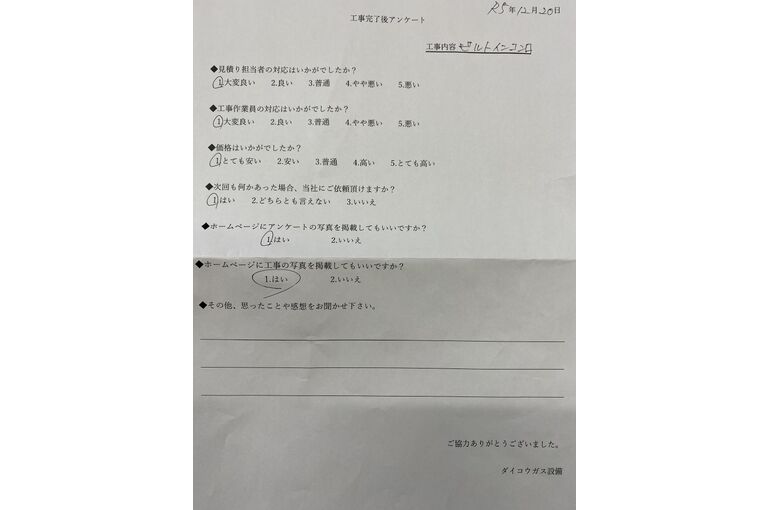 R5年12月20日
工事完了後アンケート
工事内容 ビルトインコンロ
◆見積り担当者の対応はいかがでしたか?
1.大変良い 2.良い 3.普通 4.やや悪い 5.悪い
◆工事作業員の対応はいかがでしたか?
1.大変良い 2.良い 3.普通 4.やや悪い 5.悪い
◆価格はいかがでしたか?
1.とても安い 2.安い 3.普通 4.高い 5.とても高い
◆次回も何かあった場合、当社にご依頼頂けますか?
1.はい 2.どちらとも言えない 3.いいえ
◆ホームページにアンケートの写真を掲載してもいいですか?
1.はい 2.いいえ
◆ホームページに工事の写真を掲載してもいいですか?
1.はい 2.いいえ
◆その他、思ったことや感想をお聞かせ下さい。
ご協力ありがとうございました。
ダイコウガス設備